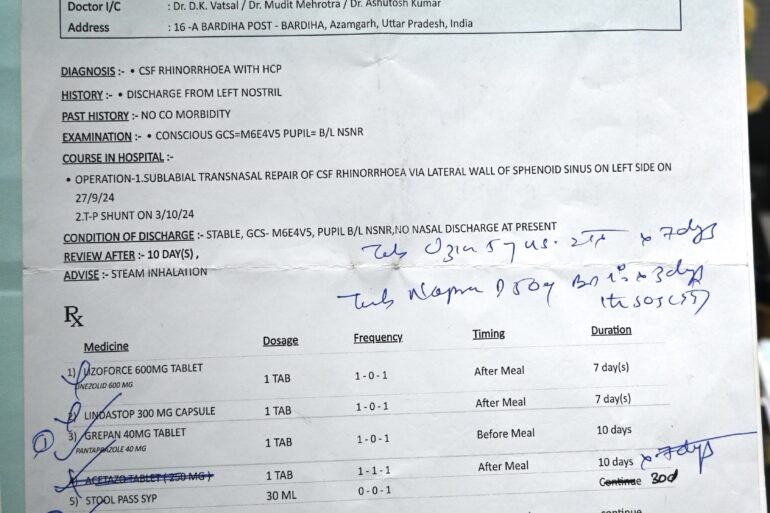 Doctor I/C : Dr. D.K. Vatsal / Dr. Mudit Mehrotra / Dr. Ashutosh Kumar
Address : 16 -A BARDIHA POST - BARDIHA, Azamgarh, Uttar Pradesh, India
DIAGNOSIS :- • CSF RHINORRHOEA WITH HCP
HISTORY :- • DISCHARGE FROM LEFT NOSTRIL
PAST HISTORY :- NO CO MORBIDITY
EXAMINATION :- • CONSCIOUS GCS=M6E4V5 PUPIL= B/L NSNR
COURSE IN HOSPITAL :-
• OPERATION-1.SUBLABIAL TRANSNASAL REPAIR OF CSF RHINORRHOEA VIA LATERAL WALL OF SPHENOID SINUS ON LEFT SIDE ON
27/9/24
2.T-P SHUNT ON 3/10/24
CONDITION OF DISCHARGE :- STABLE, GCS- M6E4V5, PUPIL B/L NSNR,NO NASAL DISCHARGE AT PRESENT
REVIEW AFTER :- 10 DAY(S) ,
x 7dys
ADVISE :- STEAM INHALATION
x 3dys
Rx
Medicine Dosage Frequency Timing Duration
1) LIZOFORCE 600MG TABLET 1 TAB 1 - 0 - 1 After Meal 7 day(s)
LINEZOLID 600 MG
2) LINDASTOP 300 MG CAPSULE 1 TAB 1 - 0 - 1 After Meal 7 day(s)
1
3) GREPAN 40MG TABLET 1 TAB 1 - 0 - 1 Before Meal 10 days
PANTAPRAZOLE 40 MG
ACETAZO TABLET ( 250 MG ) 1 TAB 1 - 1 - 1 After Meal 10 days x 7dys
5) STOOL PASS SYP 30 ML 0 - 0 - 1 Continue 30d
continue